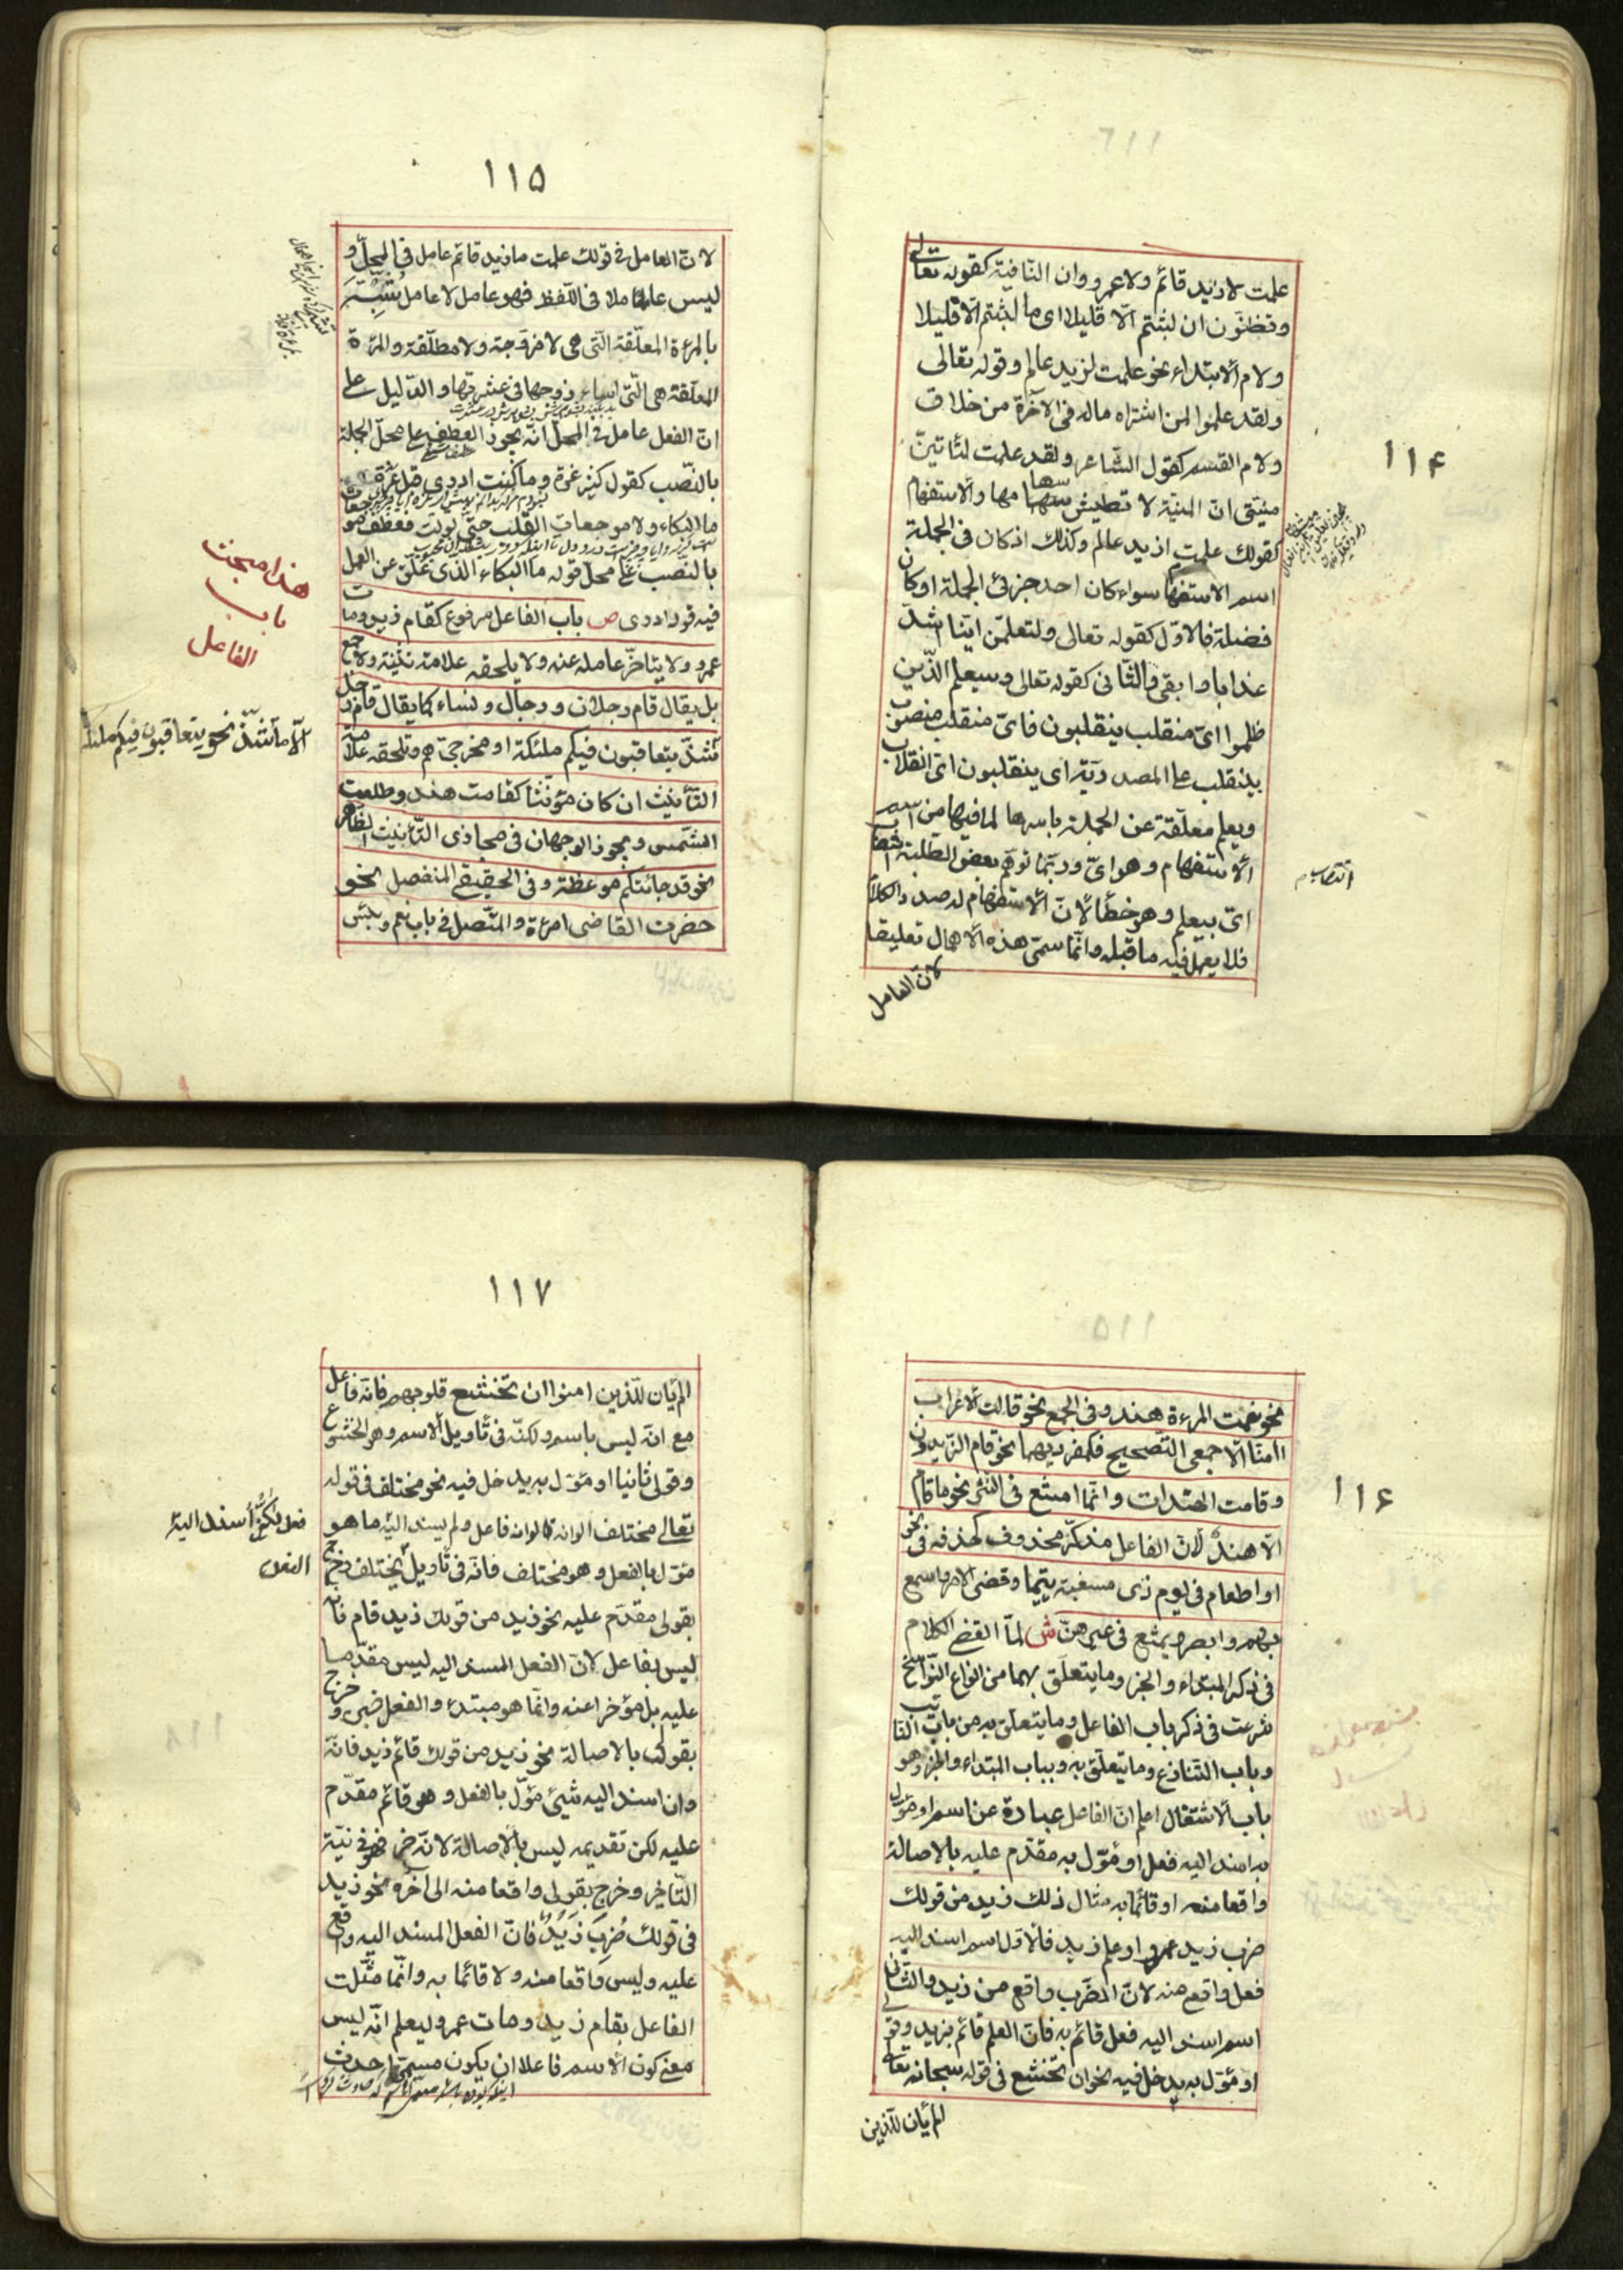 ۱۱۴
علمت لا زيد قائم ولا عمرو وان النّافية كقوله تعالى
وتظنّون ان لبثتم الّا قليلا اى ما لبثتم الّا قليلا
ولام الابتداء نحو علمت لزيد عالم وقوله تعالى
ولقد علموا لمن اشتراه ماله فى الآخرة من خلاق
ولام القسم كقول الشّاعر ولقد علمت لتأتينّ
منيّتى انّ المنيّة لا تطيش سهامها والاستفهام
كقولك علمت ازيد عالم وكذلك اذ كان فى الجملة
اسم الاستفهام سواء كان احد جزئى الجملة او كان
فضيلة فالاوّل كقوله تعالى ولتعلمنّ ايّنا اشدّ
عذابا وابقى والثّانى كقوله تعالى وسيعلم الّذين
ظلموا اىّ منقلب ينقلبون فاىّ منقلب منصوب
بينقلب على المصدريّة اى ينقلبون اىّ انقلاب
ويعلم معلّقة عن الجملة باسرها لما فيها من اسم
الاستفهام وهو اىّ وربّما توهّم بعض الطّلبة انتصاب
اىّ بيعلم وهو خطأ لانّ الاستفهام له صدر الكلام
فلا يعمل فيه ما قبله وانّما سمّى هذه الاهمال تعليقا
لانّ العامل
۱۱۵
لانّ العامل فى قولك علمت ما زيد قائم عامل فى المحلّ و
ليس عاملا فى اللّفظ فهو عامل لا عامل شبّه
بالمرءة المعلّقة الّتى هى لا مزوّجة ولا مطلّقة والمرءة
المعلّقة هى الّتى اساء زوجها فى عشرتها والدّليل على
انّ الفعل عامل فى المحلّ انّه يجوز العطف على محلّ الجملة
بالنّصب كقول كثير عزة وما كنت ادرى قبل عزة
ما البكاء ولا موجعات القلب حتّى تولّت فعطف موجعات
بالنّصب على محلّ قوله ما البكاء الّذى علّق عن العمل
فيه قوله ادرى ص باب الفاعل مرفوع كقام زيد ومات
عمرو ولا يتاخّر عامله عنه ولا يلحقه علامة تثنية ولا جمع
بل يقال قام رجلان ورجال ونساء كما يقال قام رجل
وشذّ يتعاقبون فيكم ملئكة او مخرجىّ هم وتلحقه علامة
التّأنيث ان كان مؤنّثا كقامت هند وطلعت
الشّمس ويجوز الوجهان فى مجازى التّأنيث الظّاهر
نحو قد جائتكم موعظة وفى الحقيقى المنفصل نحو
حضرت القاضى امرءة والمتّصل فى باب نعم وبئس
هذا مبحث
باب
الفاعل
الّا ما شذّ نحو يتعاقبون فيكم ملئكة
۱۱۶
نحو نعمت المرءة هند وفى الجمع نحو قالت الاعراب
امنّا الّا جمعى التّصحيح فكمفرديهما نحو قام الزّيدون
وقامت الهندات وانّما امتنع فى النثر نحو ما قام
الّا هند لانّ الفاعل مذكّر محذوف كحذفه فى نحو
او اطعام فى يوم ذى مسغبة يتيما وقضى الامر واسمع
بهم وابصر ويمتنع فى غيرهنّ ش لمّا انقضى الكلام
فى ذكر المبتداء والخبر وما يتعلّق بهما من انواع النّواسخ
شرعت فى ذكر باب الفاعل وما يتعلّق به من باب النّائب
وباب التّنازع وما يتعلّق به وبباب المبتداء والخبر وهو
باب الاشتغال اعلم انّ الفاعل عبارة عن اسم او مؤوّل
به اسند اليه فعل او مؤوّل به مقدّم عليه بالاصالة
واقعا منه او قائما به مثال ذلك زيد من قولك
ضرب زيد عمرو او علم زيد فالاوّل اسم اسند اليه
فعل واقع منه لانّ الضّرب واقع من زيد والثّانى
اسم اسند اليه فعل قائم به فانّ العلم قائم بزيد وقولى
او مؤوّل به يدخل فيه نحو ان تخشع فى قوله سبحانه تعالى
الم يأن للّذين
۱۱۷
الم يأن للّذين امنوا ان تخشع قلوبهم فانّه فاعل
مع انّه ليس باسم ولكنّه فى تأويل الاسم وهو الخشوع
وقولى ثانيا او مؤوّل به يدخل فيه نحو مختلف فى قوله
تعالى مختلف الوانه فالوانه فاعل ولم يسند اليه ما هو
مؤوّل بالفعل وهو مختلف فانّه فى تأويل يختلف وخرج
بقولى مقدّم عليه نحو زيد من قولك زيد قام فانّه
ليس بفاعل لانّ الفعل المسند اليه ليس مقدّما
عليه بل مؤخرا عنه وانّما هو مبتدء والفعل خبر وخرج
بقولى بالاصالة نحو زيد من قولك قائم زيد فانّه
وان اسند اليه شيئ مؤوّل بالفعل وهو قائم مقدّم
عليه لكن تقديمه ليس بالاصالة لانّه خبر فهو فى نيّة
التّاخير وخرج بقولى واقعا منه الى آخره نحو زيد
فى قولك ضُرِبَ زَيدٌ فانّ الفعل المسند اليه واقع
عليه وليس واقعا منه ولا قائما به وانّما مثّلت
الفاعل بقام زيد ومات عمرو ليعلم انّه ليس
معنى كون الاسم فاعلا ان يكون مسمّاه احدث
فعل ولكن أسند اليه
الفعل